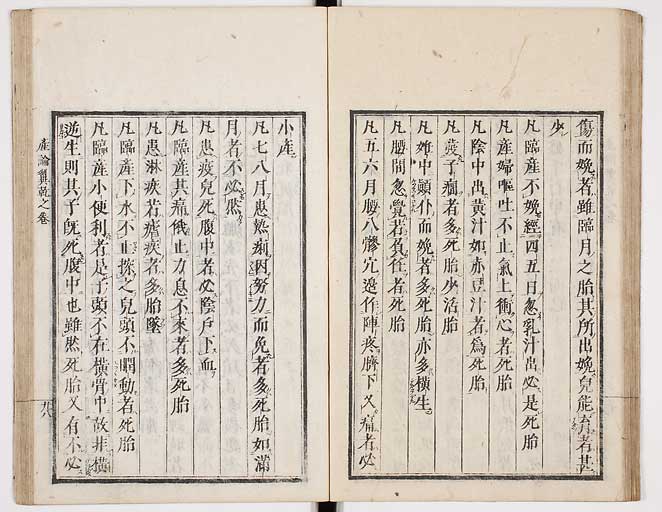 傷而娩者雖臨月之胎其所出娩兒能育者甚
少
凡臨産不娩經四五日忽乳汁出必是死胎
凡産婦嘔吐不止氣上衝心者死胎
凡陰中出黄汁如赤豆汁者爲死胎
凡發子癇者多死胎少活胎
凡娩中頭仆而娩者多死胎亦多橫生
凡腰間忽覺若負任者死胎
凡五六月腰八髎穴邊作陣疼臍下又痛者必
小産
凡七八月患熱痢因努力而免者多死胎如滿
月者不必然
凡患疫兒死腹中者必陰戸下血
凡臨産其痛俄止力息不來者多死胎
凡患淋疾若瘧疾者多胎墜
凡臨産下水不止探之兒頭不動者死胎
凡臨産小便利者是子頭不在橫骨中故非橫
逆生則其子既死腹中也雖然死胎又有不必
産論翼乾之卷